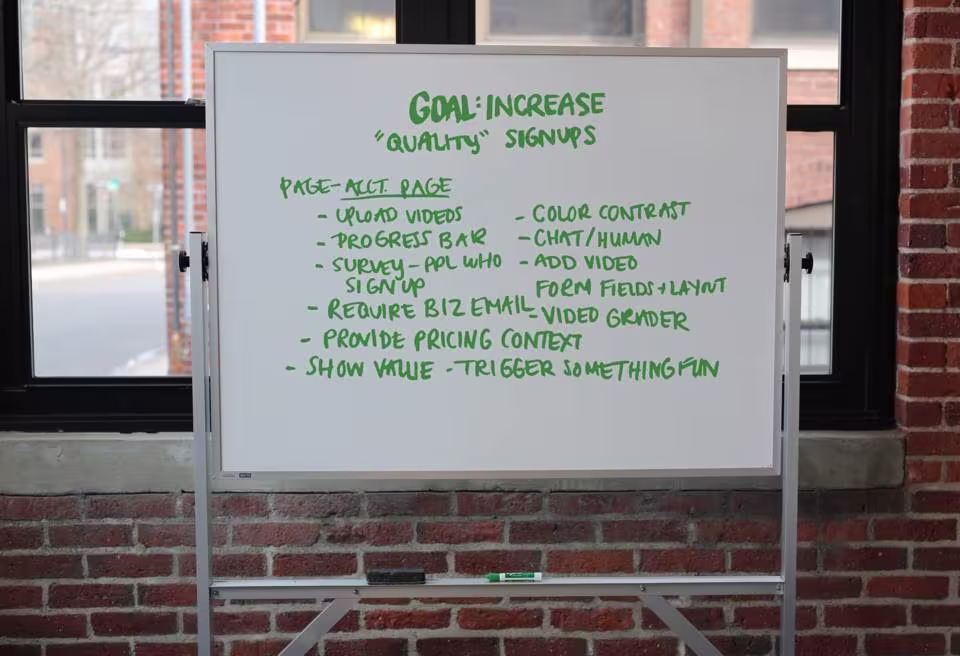 GOAL: INCREASE
"QUALITY" SIGNUPS
PAGE-ACCT. PAGE
- UPLOAD VIDEOS
- PROGRESS BAR
- SURVEY-PPL WHO
SIGN UP
- REQUIRE BIZ EMAIL
- PROVIDE PRICING CONTEXT
- SHOW VALUE - TRIGGER SOMETHING FUN
- COLOR CONTRAST
- CHAT/HUMAN
- ADD VIDEO
FORM FIELDS + LAYOUT
- VIDEO GRADER